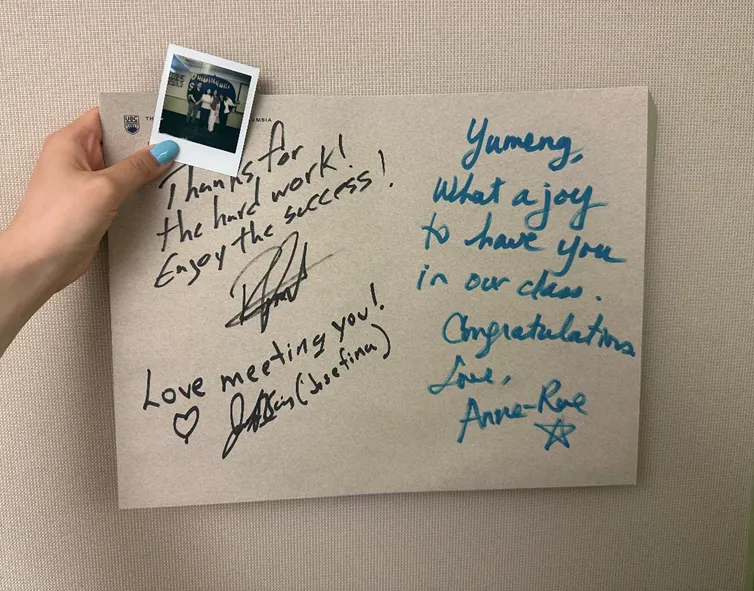 UBC
TH
UMBIA
Thanks for
the hard work!
Enjoy the success!
Love meeting you!
♡ (Josefina)
Yumeng,
What a joy
to have you
in our class.
Congratulations
Love,
Anne-Rae
☆